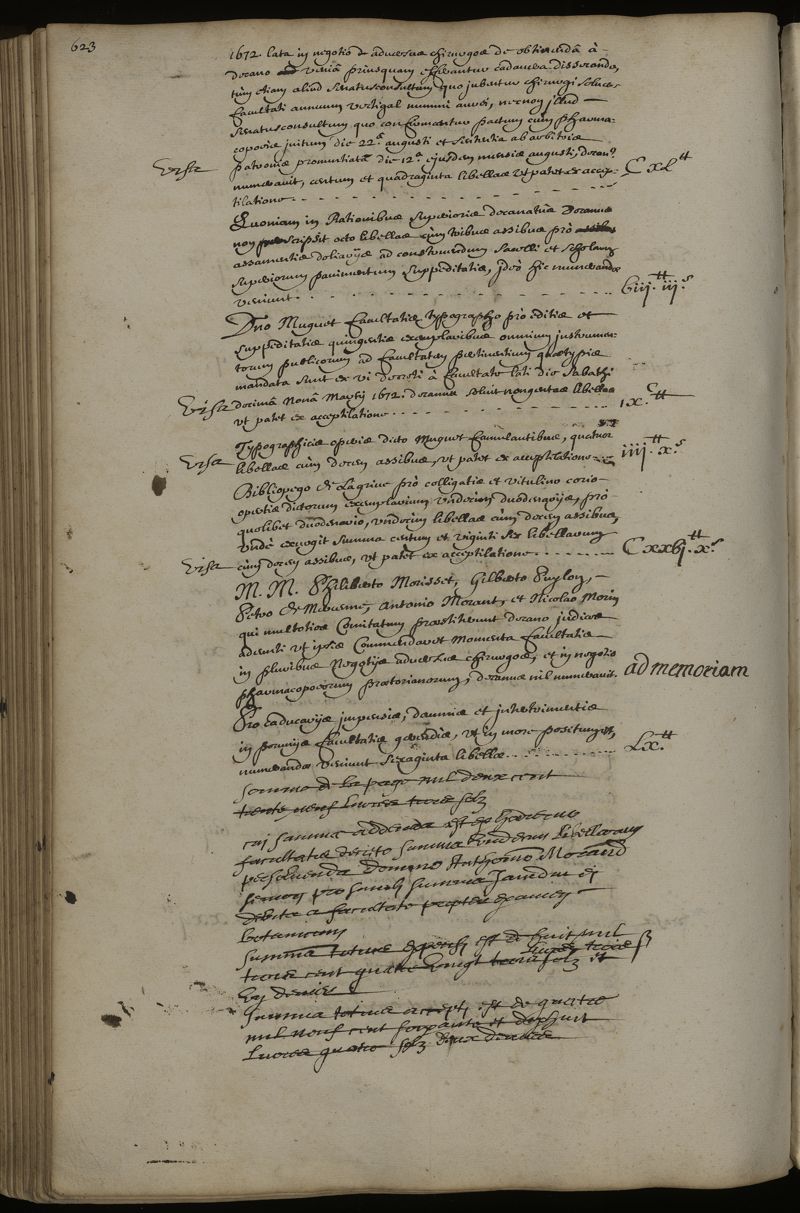 623
1672. lata in negotio de adversus chirurgos de obtinenda à
decano venia priusquam efferantur cadavera dissecanda,
tùm etiam aliud senatusconsultum quo jubentur chirurgi soluere
facultati annuum vectigal nummi aurei, necnon illud
senatusconsultum quo confirmantur pactum cùm pharma-
copoeis initum die 22ª augusti et sententia ab arbitris
Visa patronis pronuntiata die 12ª ejusdem mensis augusti, decanus
numeravit, centum et quadraginta libellas ut patet ex accep-
tilatione CXL ᵗᵗ
Quoniam in Rationibus superioris decanatus Decanus
non scripsit octo libellas cùm tribus assibus pro
assamentis ad construendum et scholarum
superiorum pavimentum suppeditatis, ideò hic numerandae
veniunt viij ᵗᵗ iij ˢ
Dno Muguet facultatis typographo pro editis et
suppeditatis quingentis exemplaribus omnium instrumen-
torum publicorum ad facultatem pertinentium quae typis
mandata sunt ex vi decreti à facultate lati die sabathi
Visa decimâ nonâ Martij 1672. decanus soluit nongentas libellas
ut patet ex acceptilatione ix ᶜ ᵗᵗ
Typographicis operis dicto Muguet famulantibus, quatuor
Visa libellas cùm decem assibus, ut patet ex acceptilatione iiij ᵗᵗ x ˢ
Bibliopego de Lagrive prò colligatis et vitulino corio
opertis dictorum exemplarium undecim duodenarijs, prò
quolibet duodenario, undecim libellas cùm decem assibus,
unde exurgit summa centum et viginti sex libellarum
Visa cùm decem assibus, ut patet ex acceptilatione Cxxvj ᵗᵗ x ˢ
M. M. Philiberto Morisset, Gilberto Puylon,
Petro de Mercenne, Antonio Morant, et Nicolao Morin
qui multoties Comitatum praestiterunt decano judices
adeunti ut ipsis Commendaret Momenta facultatis
in pluribus Negotijs adversus chirurgos, et in negotio
pharmacopoeorum praetorianorum, decanus nil numeravit. ad memoriam
Pro caducarijs impensis, damnis et intertrimentis
in pecunijs facultatis gerendis, ut in more positum est,
numerandae veniunt sexaginta libellae Lx ᵗᵗ
somme de la page mil deux cent
trente neuf livres trois solz
cui summa addenda est ex
facultatis decreto summa libellarum
persolvenda domino Anthonio Morand
pro summa jamdiu ei
debita a facultate propter examen
botanicum
summa totius expensi est de huit mil
trois cent quatre vingt livres trois solz et
vj deniers
summa totius accepti est de quatre
mil neuf cent soixante et dixhuit
livres quatre solz deux deniers